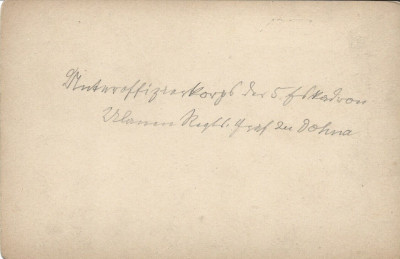 Unteroffizierkorps der 5. Eskadron
Ulanen Regts. Graf zu Dohna